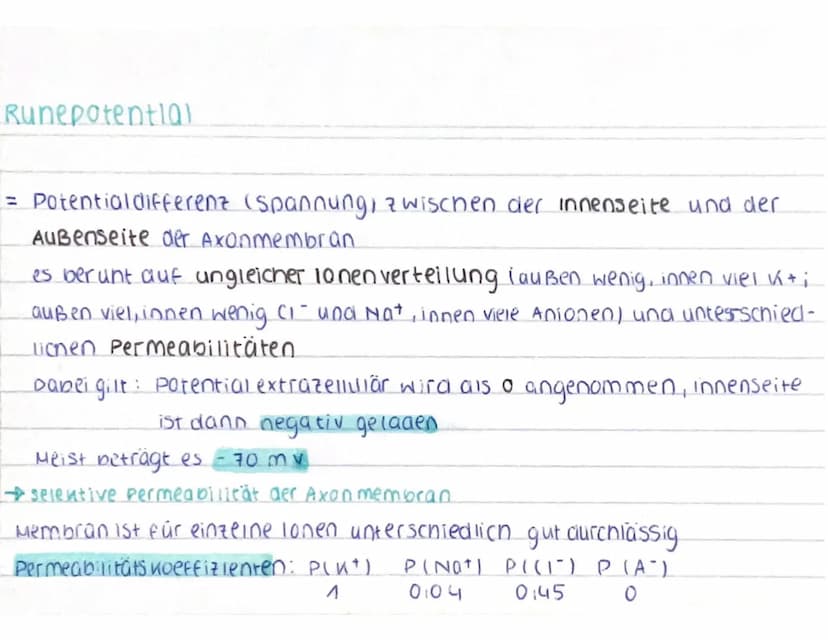 Ruhepotential
= Potentialdifferenz (Spannung) zwischen der Innenseite und der
Außenseite der Axonmembran
es beruht auf ungleicher Ionenverteilung (außen wenig, innen viel K+;
außen viel, innen wenig Cl⁻ und Na⁺, innen viele Anionen) und unterschied-
lichen Permeabilitäten
Dabei gilt: Potential extrazellulär wird als 0 angenommen, innenseite
ist dann negativ geladen
Meist beträgt es -70 mV
→ selektive Permeabilität der Axonmembran
Membran ist für einzelne Ionen unterschiedlich gut durchlässig
Permeabilitätskoeffizienten: P(K⁺) P(Na⁺) P(Cl⁻) P(A⁻)
1 0:04 0:45 0